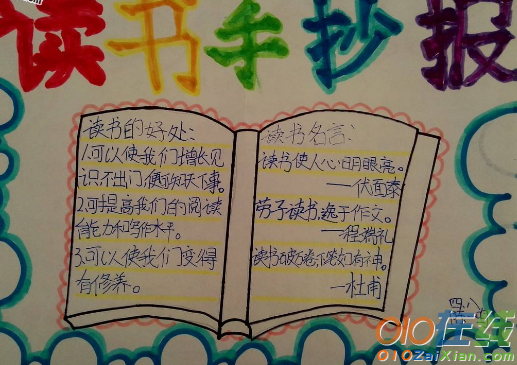 读书手抄报
读书的好处:
1.可以使我们增长见
识不出门便可知天下事。
2.可提高我们的阅读
能力和写作水平。
3.可以使我们变得
有修养。
读书名言:
读书使人心明眼亮。
——伏而泰
劳于读书,逸于作文。
——程端礼
读书破万卷下笔如有神。
——杜甫
四.八
010在线
010ZaiXian.com